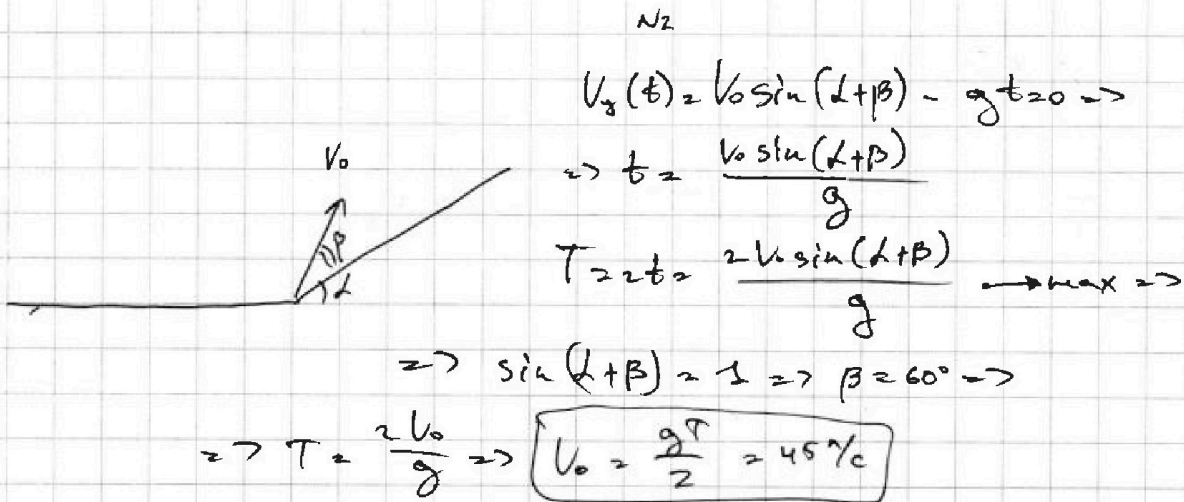 N2
V_y(t) = V_0 sin(α+β) - gt = 0 =>
=> t = \frac{V_0 sin(α+β)}{g}
T = 2t = \frac{2V_0 sin(α+β)}{g} → max =>
V_0
β
α
=> sin(α+β) = 1 => β = 60° =>
=> T = \frac{2V_0}{g} => V_0 = \frac{gT}{2} = 45 м/с